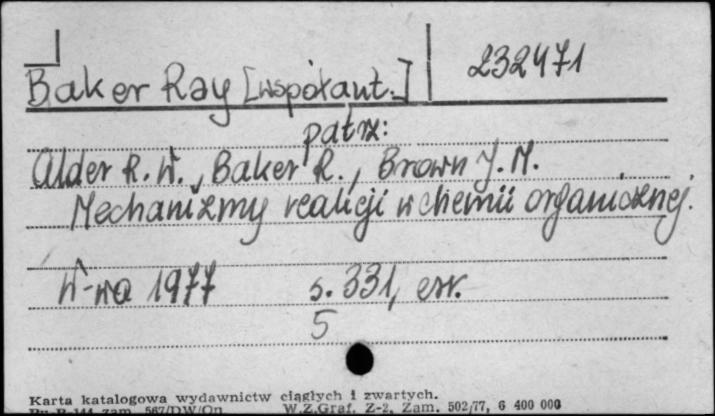 Baker Ray [współaut.] 232471
patrz:
Alder R. W., Baker R., Brown J. M.
Mechanizmy reakcji w chemii organicznej.
W-wa 1977 s. 331, err.
5
Karta katalogowa wydawnictw ciągłych i zwartych.
Pu-B-144 zam. 567/DW/On W.Z.Graf. Z-2, Zam. 502/77, 6 400 000